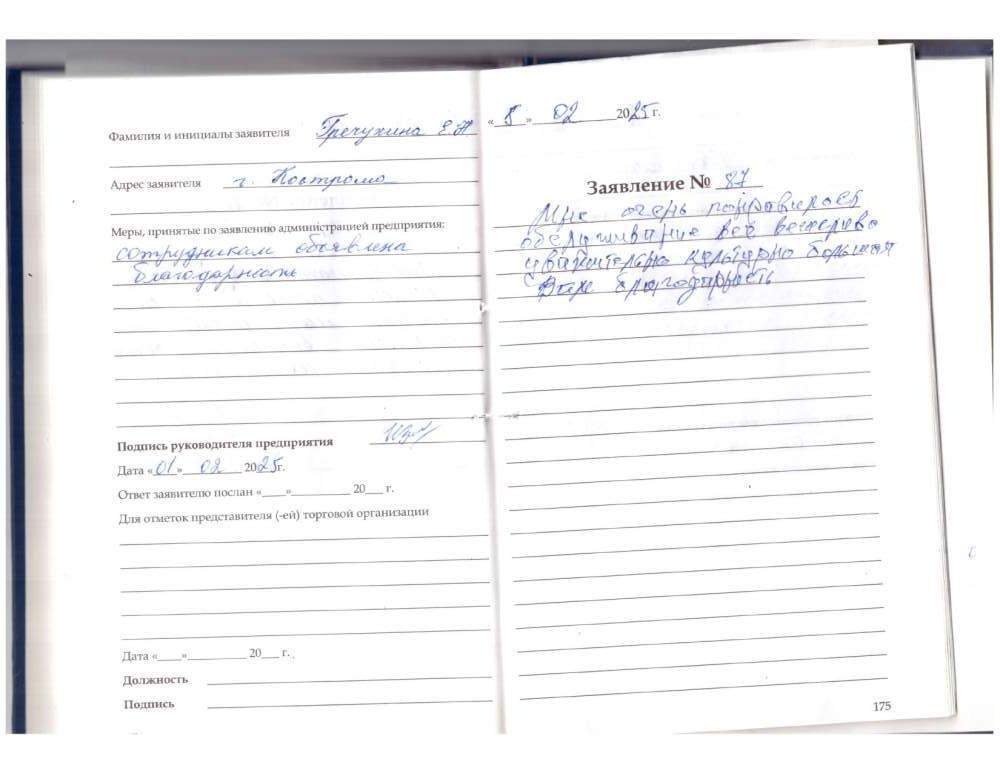 Фамилия и инициалы заявителя Гречухина Е.А
Адрес заявителя г. Кострома
Меры, принятые по заявлению администрацией предприятия:
сотрудникам объявлена
благодарность
Подпись руководителя предприятия
Дата «01» 02 2025г.
Ответ заявителю послан «____»__________ 20___ г.
Для отметок представителя (-ей) торговой организации
Дата «____»__________ 20___ г.
Должность
Подпись
«8» 02 2025 г.
Заявление № 87
Мне очень понравилось
обслуживание все вежливо
культурно большая
Вам благодарность
175